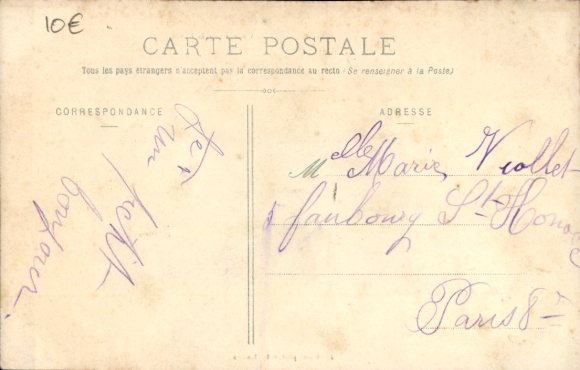 10€
CARTE POSTALE
Tous les pays étrangers n'acceptent pas la correspondance au recto (Se renseigner à la Poste)
CORRESPONDANCE
ADRESSE
un
petit
bonjour.
Mlle Marie Viollet
faubourg St Honoré
Paris 8e